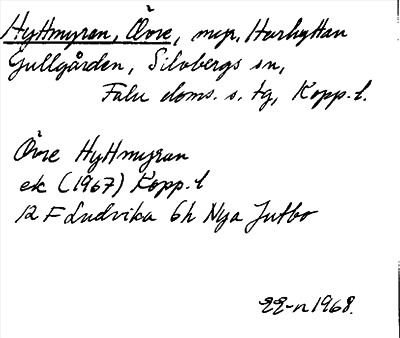 Hyttmyran, Övre, myr, Harhyttan
Gullgården, Silvbergs sn,
Falu doms. s. tg, Kopp. l.
Övre Hyttmyran
ek (1967) Kopp. l
12 F Ludvika 6h Nya Jutbo
1968.